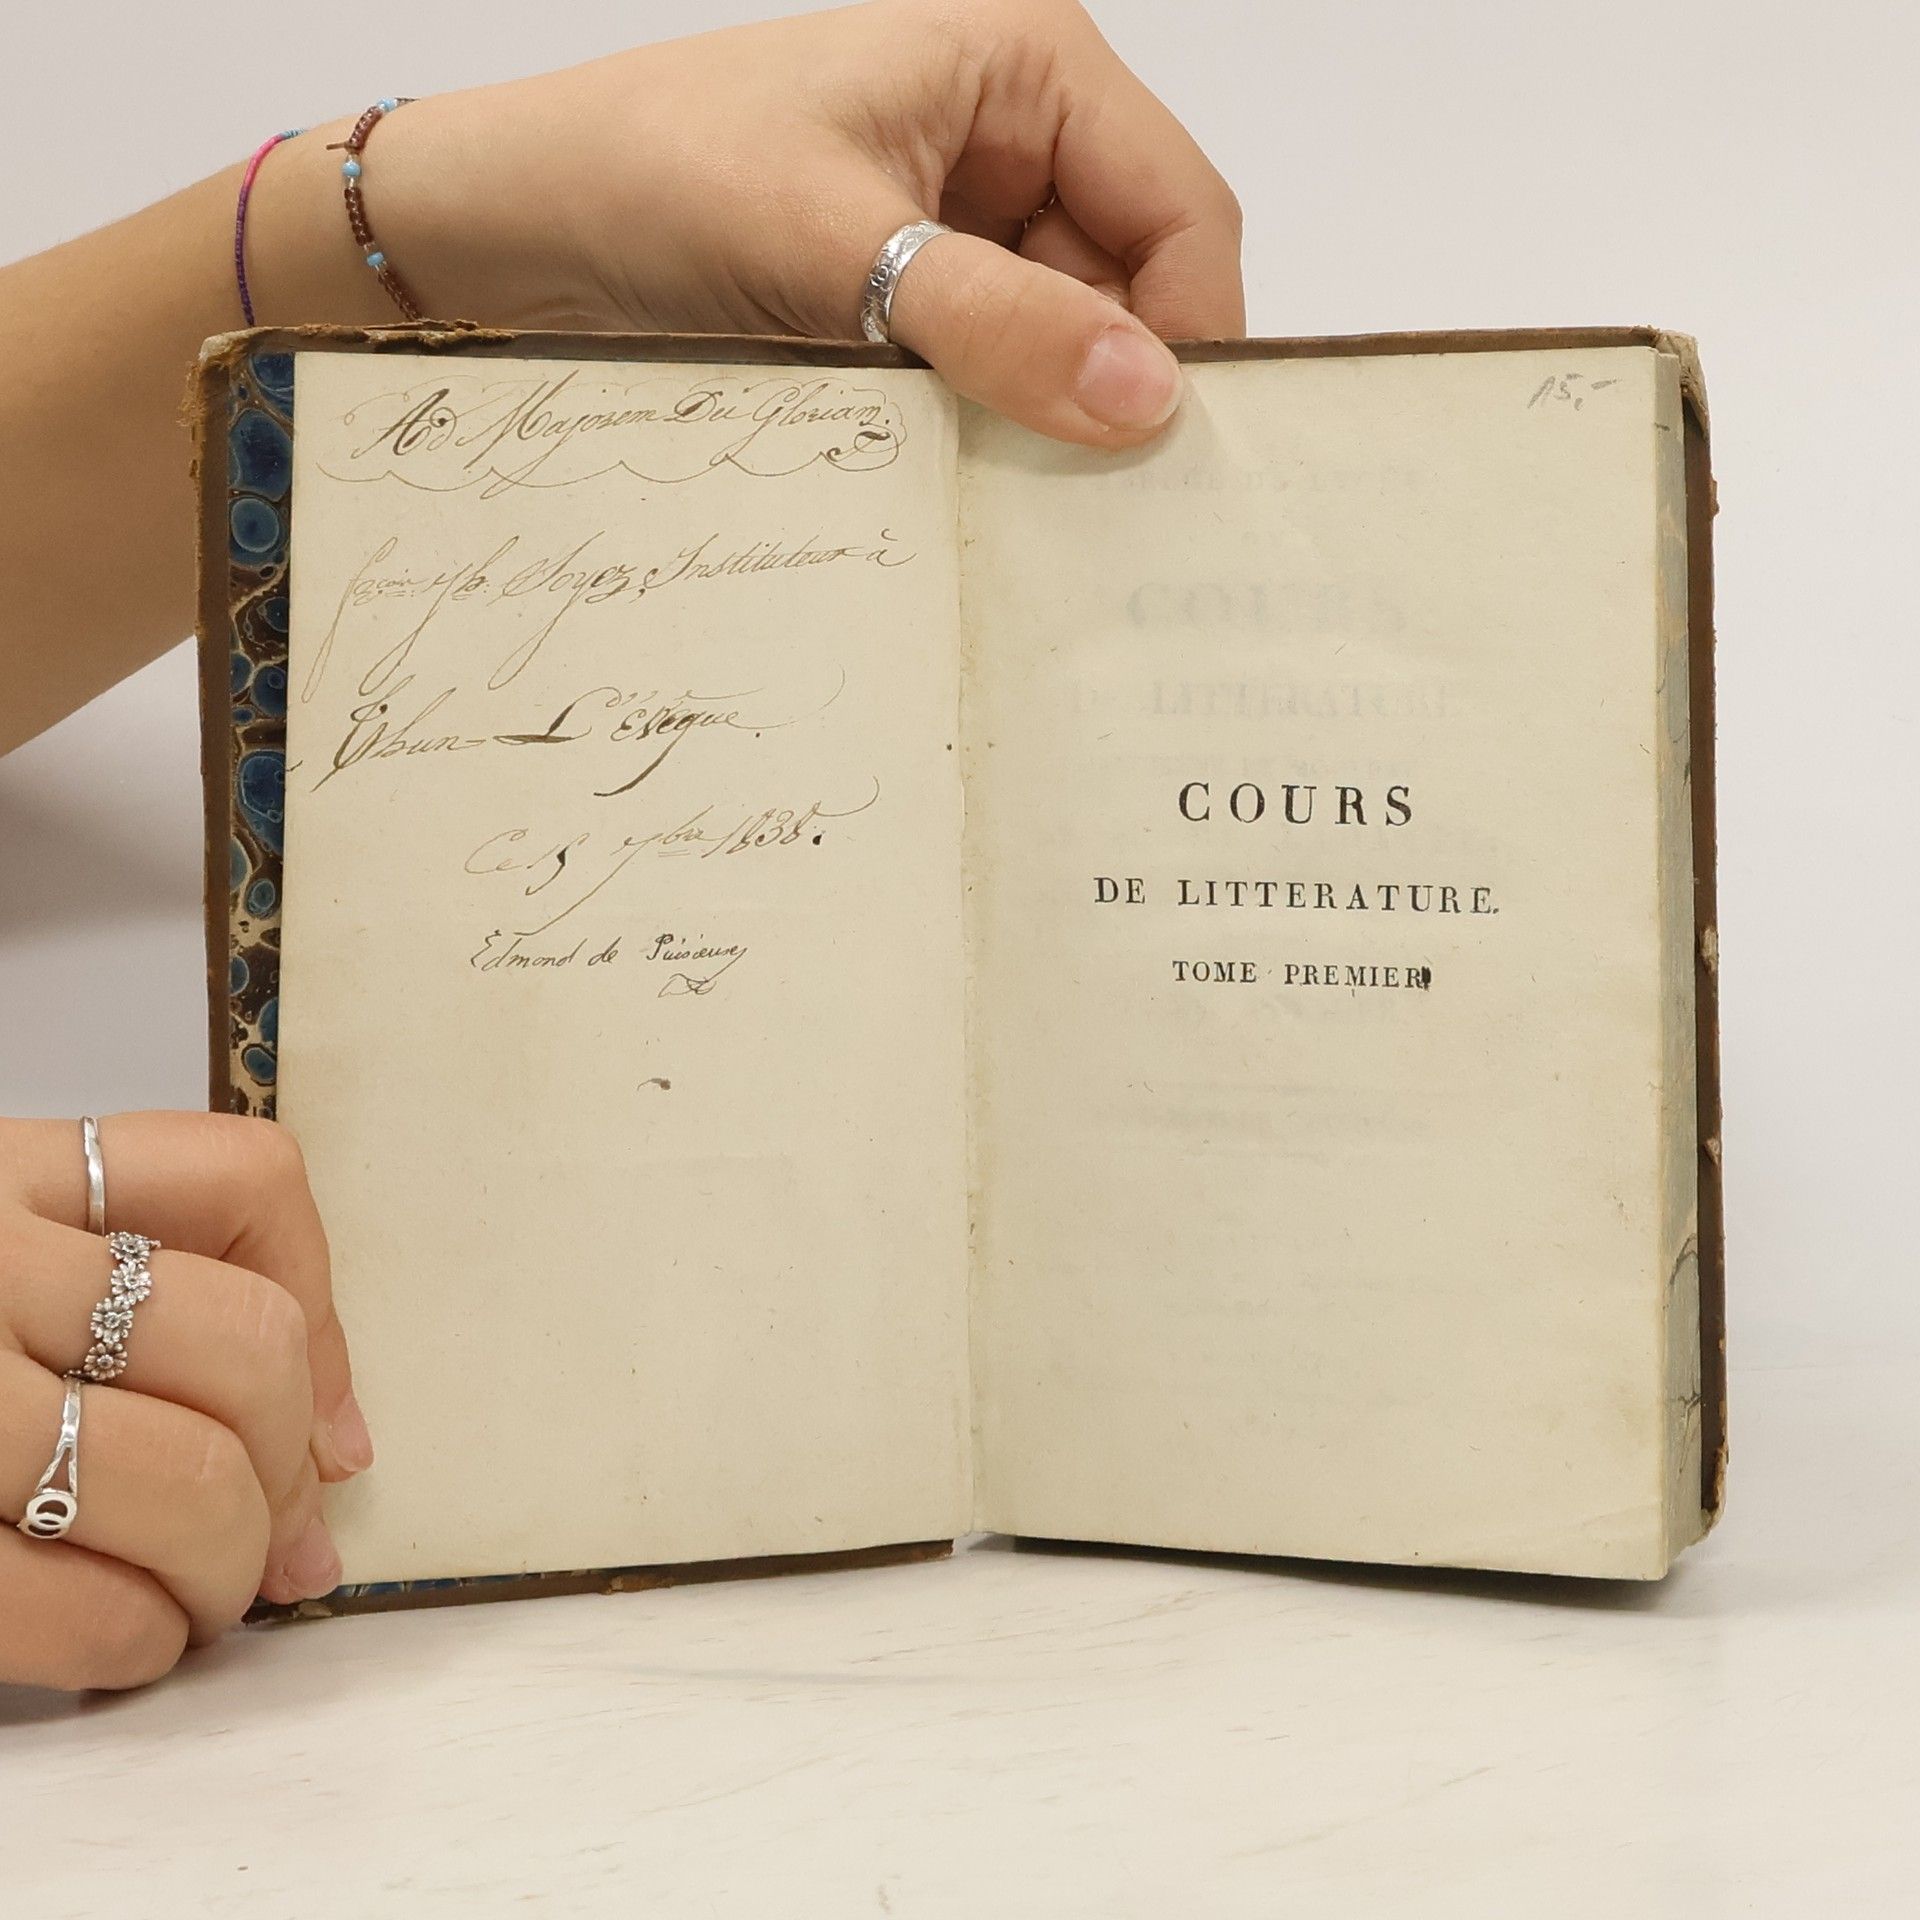 Ad Majorem Dei Gloriam.
fçois Jh. Soyez, Instituteur à
Thun-L'Evêque.
Ce 15 7bre 1838.
Edmond de Puisieux
15,-
COURS
DE LITTERATURE.
TOME PREMIER